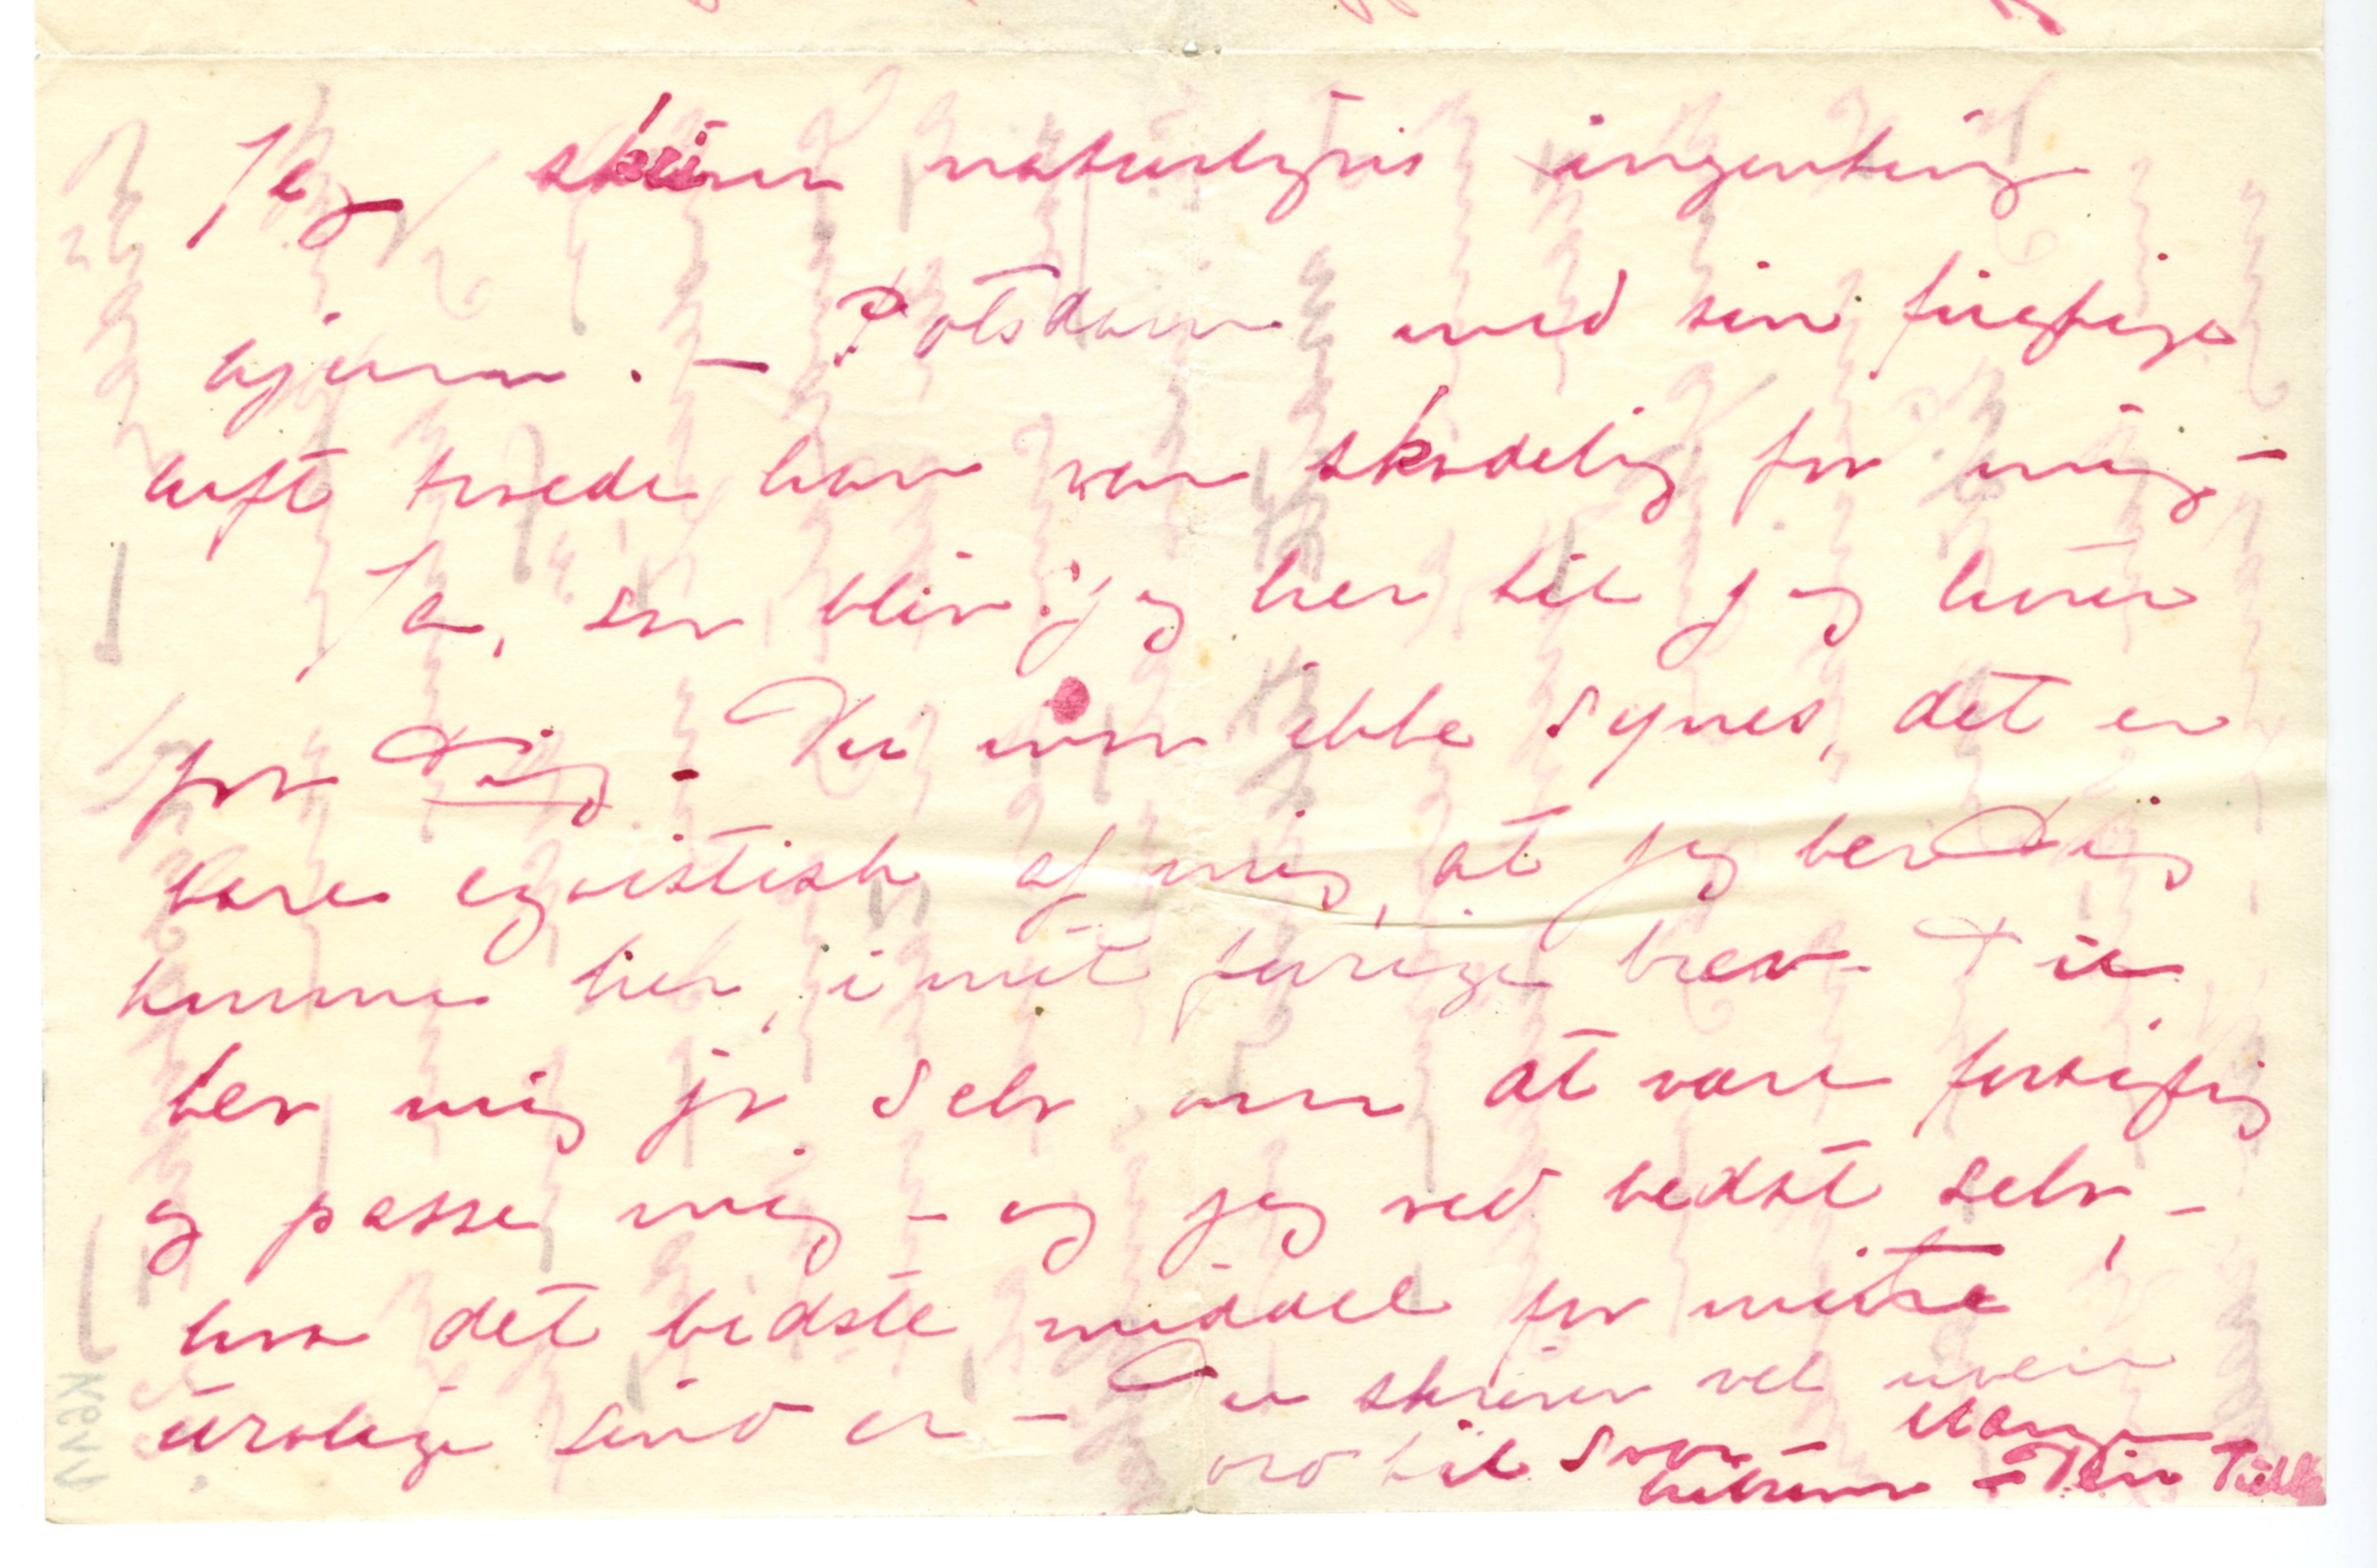 Jeg skriver naturligvis ingenting
hjem. — Potsdam med sin fugtige
luft troede han var skadelig for mig –
Ja, saa bliver jeg her til jeg hører
fra Dig. Du maa ikke synes, det er
bare egoistisk af mig, at jeg ber Dig
komme her, i mit forrige brev. Du
ber mig jo selv om at være forsigtig
og passe mig – og jeg ved bedst selv, –
hva det bedste middel for mitt
urolige sind er – Du skriver vel noen
ord til svar – Mange
hilsener – Din Tulla